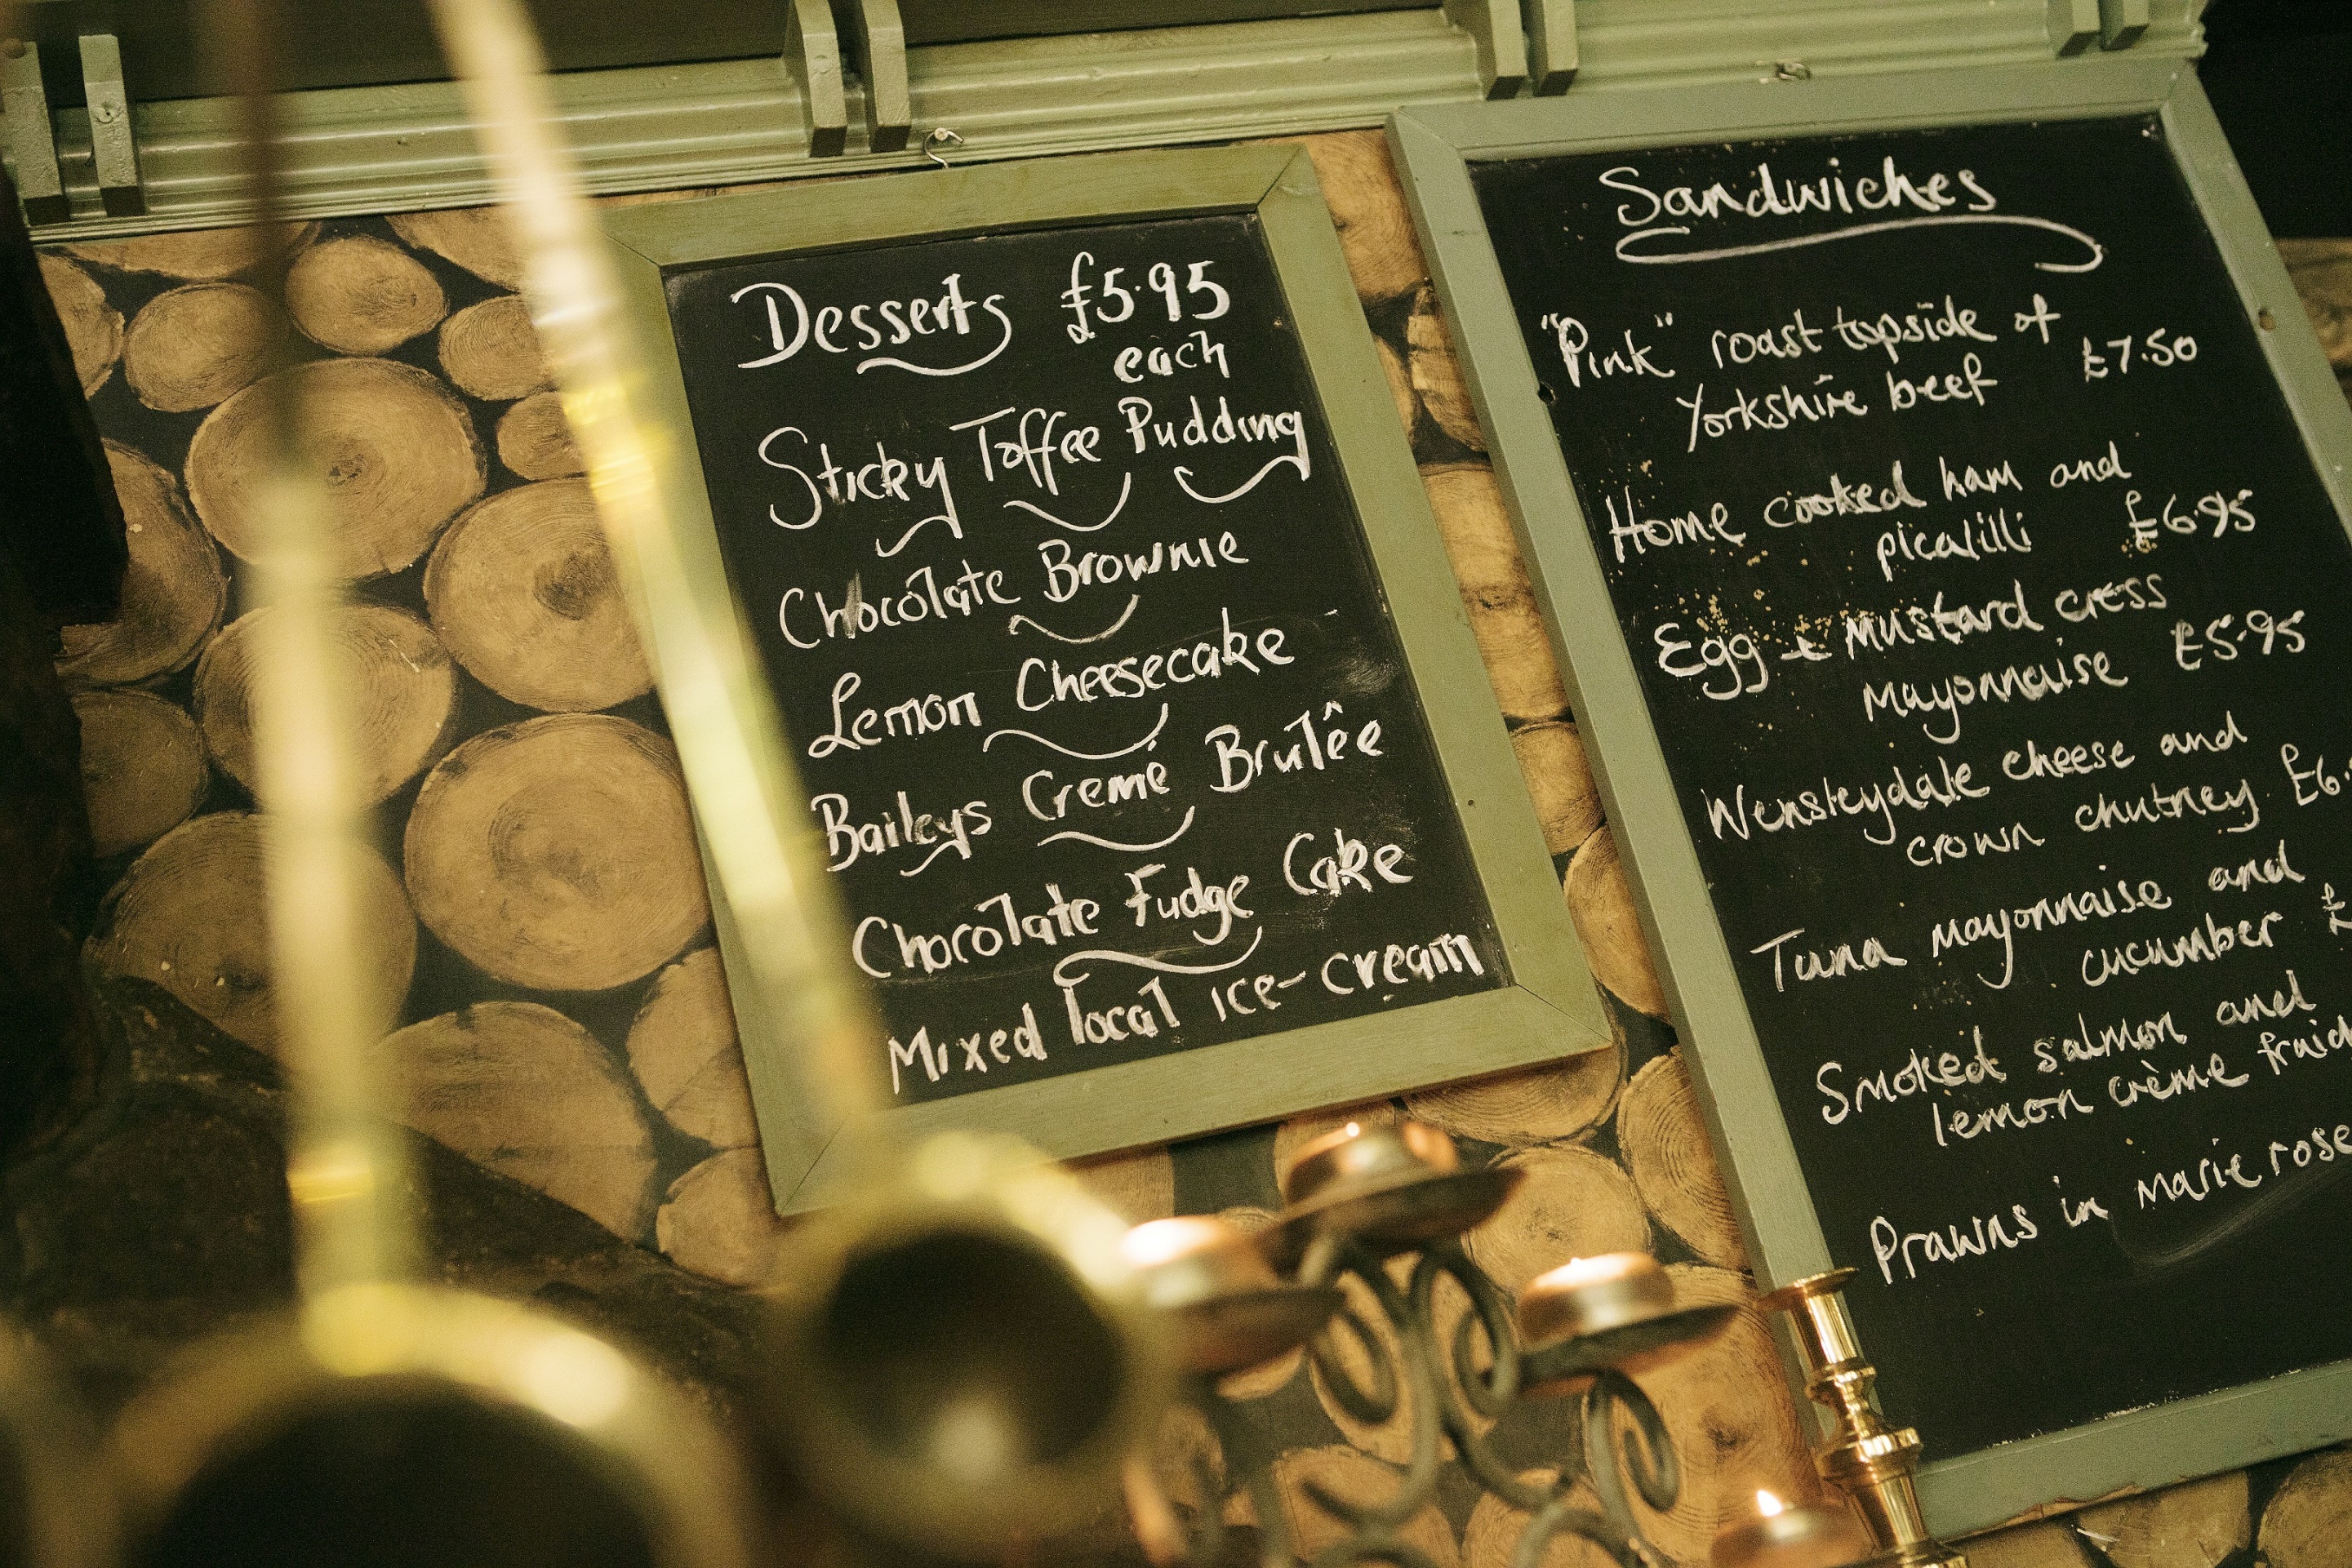 Desserts £5.95
each
Sticky Toffee Pudding
Chocolate Brownie
Lemon Cheesecake
Baileys Cremé Brulêe
Chocolate Fudge Cake
Mixed local ice-cream
Sandwiches
"Pink" roast topside of
Yorkshire beef £7.50
Home cooked ham and
picalilli £6.95
Egg + mustard cress
mayonnaise £5.95
Wensleydale cheese and
crown chutney £6.
Tuna mayonnaise and
cucumber £
Smoked salmon and
lemon crème fraic
Prawns in marie rose